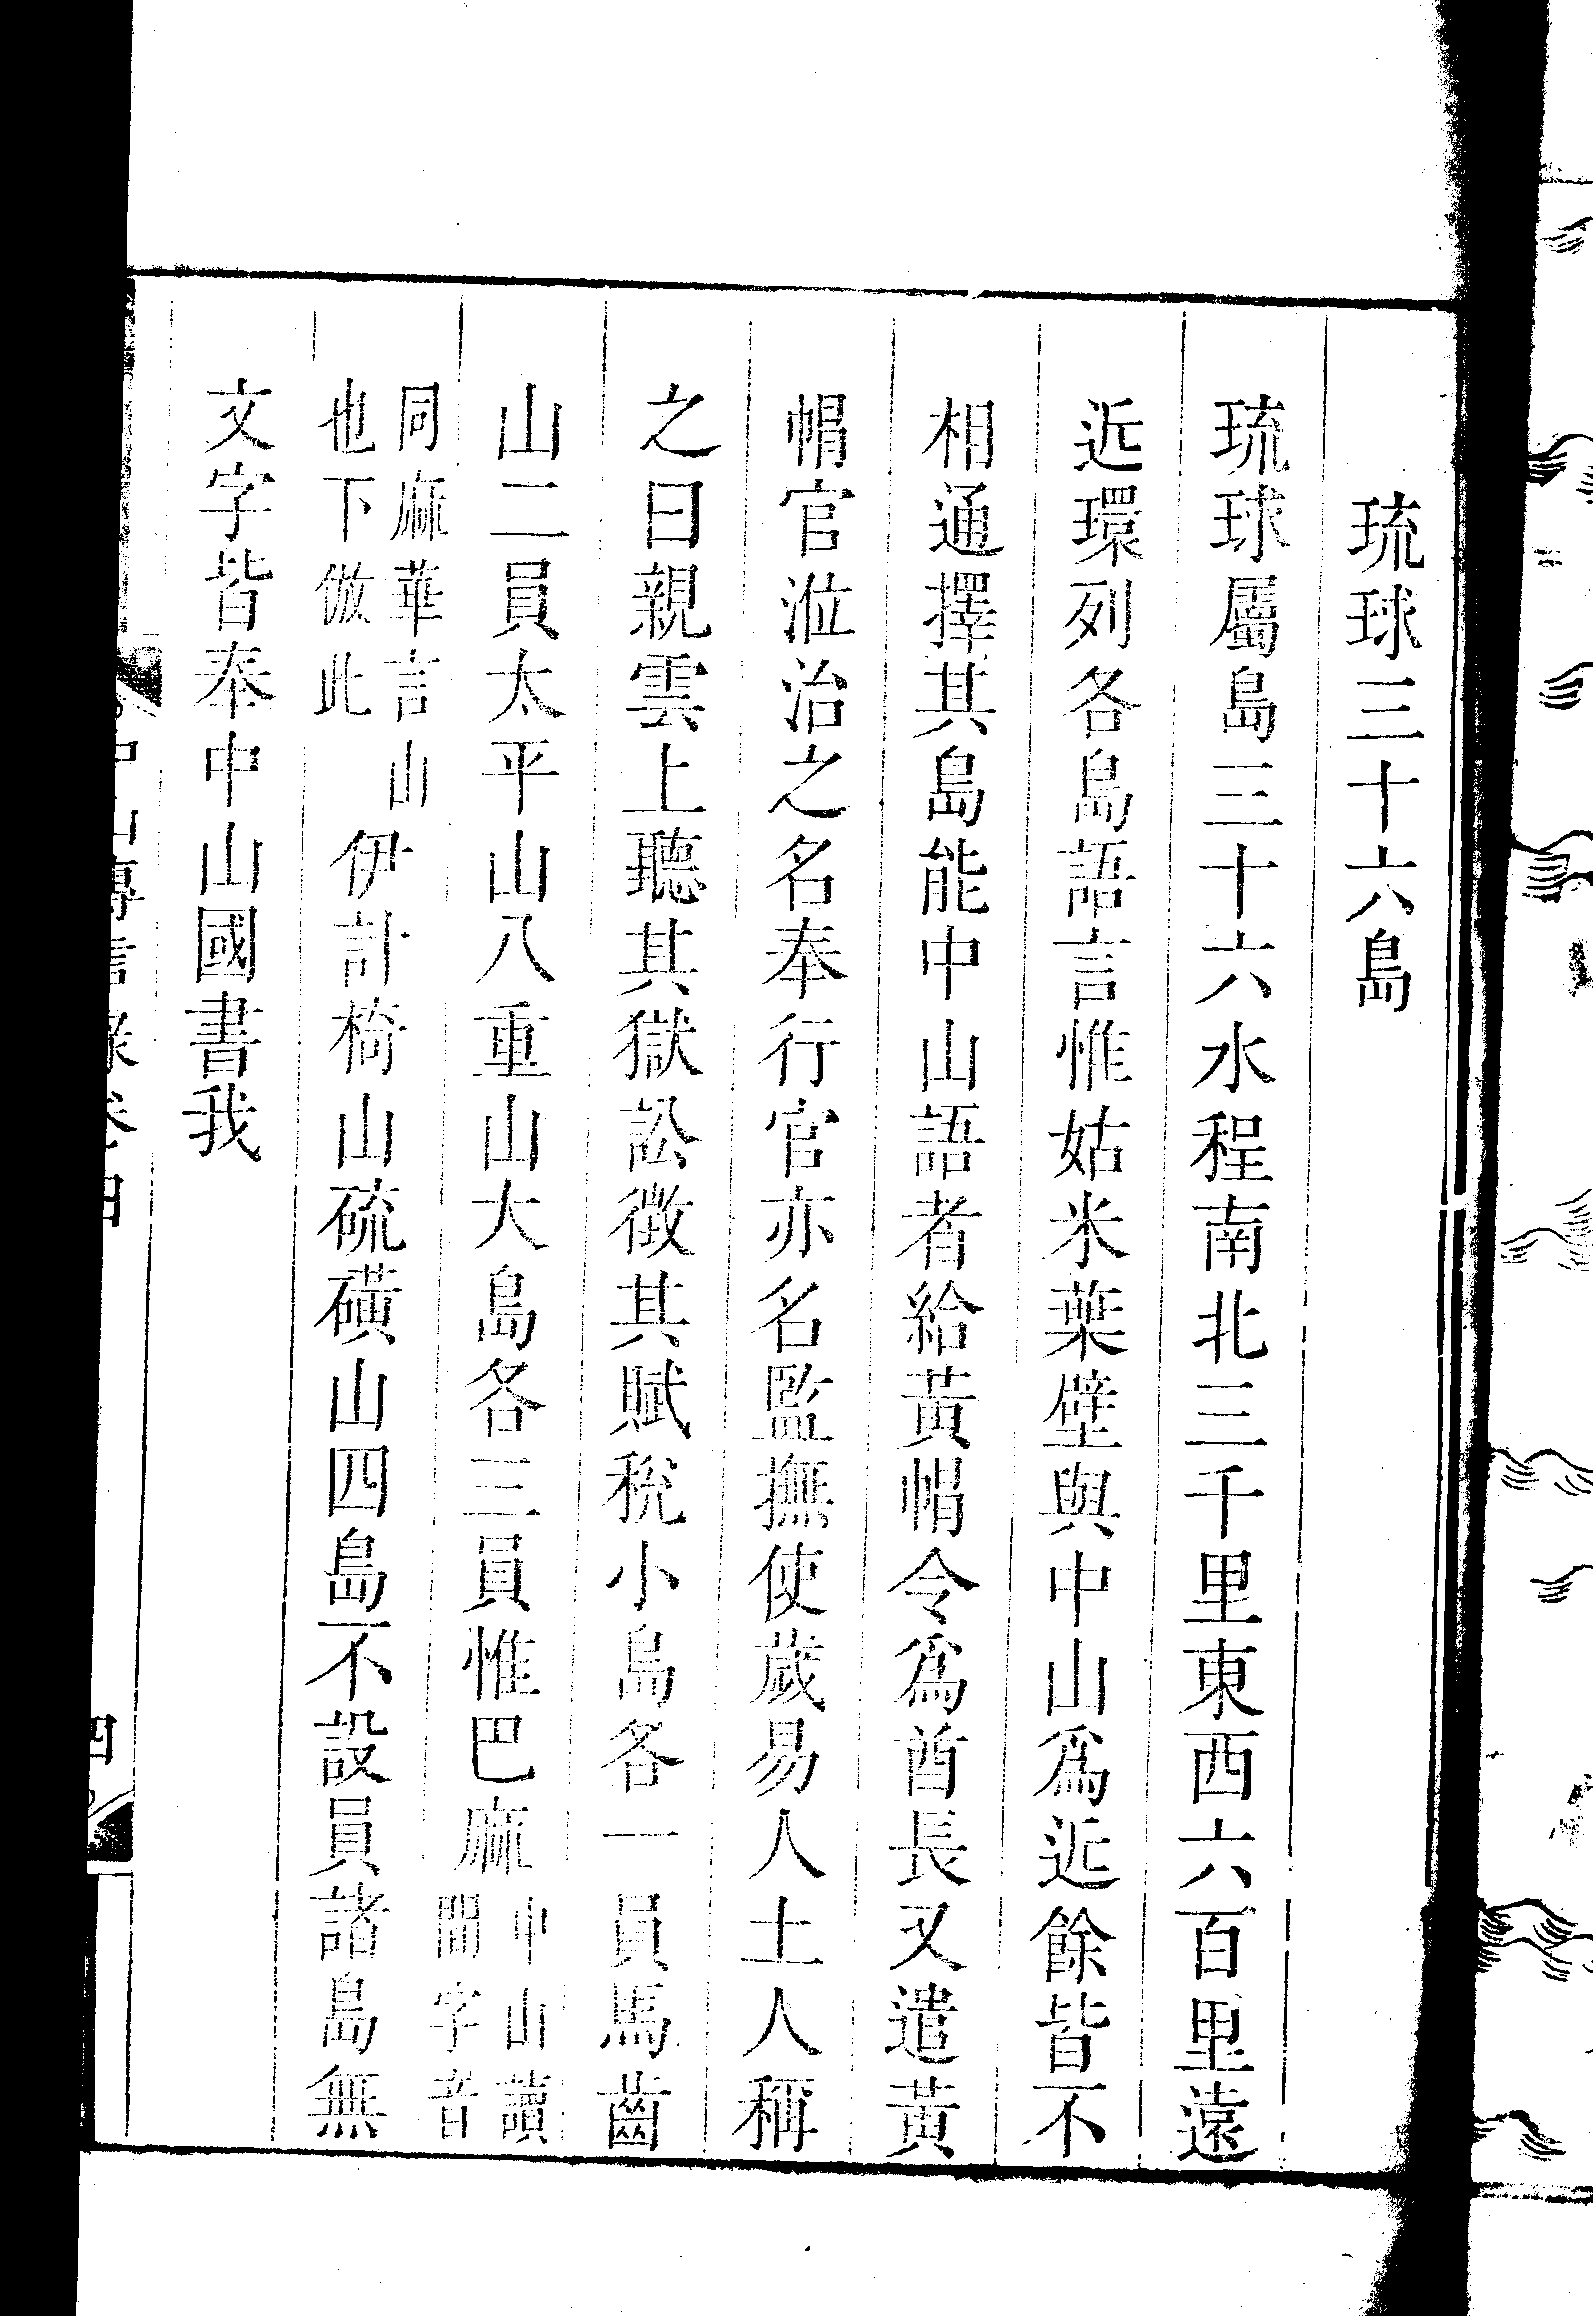 琉球三十六島
琉球屬島三十六水程南北三千里東西六百里遠
近環列各島語言惟姑米葉壁與中山爲近餘皆不
相通擇其島能中山語者給黃帽令爲酋長又遣黃
帽官涖治之名奉行官亦名監撫使歲易人土人稱
之曰親雲上聽其獄訟徴其賦稅小島各一員馬齒
山二員太平山八重山大島各三員惟巴麻中山讀間字音
同麻華言山也下倣此伊計椅山硫磺山四島不設員諸島無
文字皆奉中山國書我
中山傳信錄卷四
四